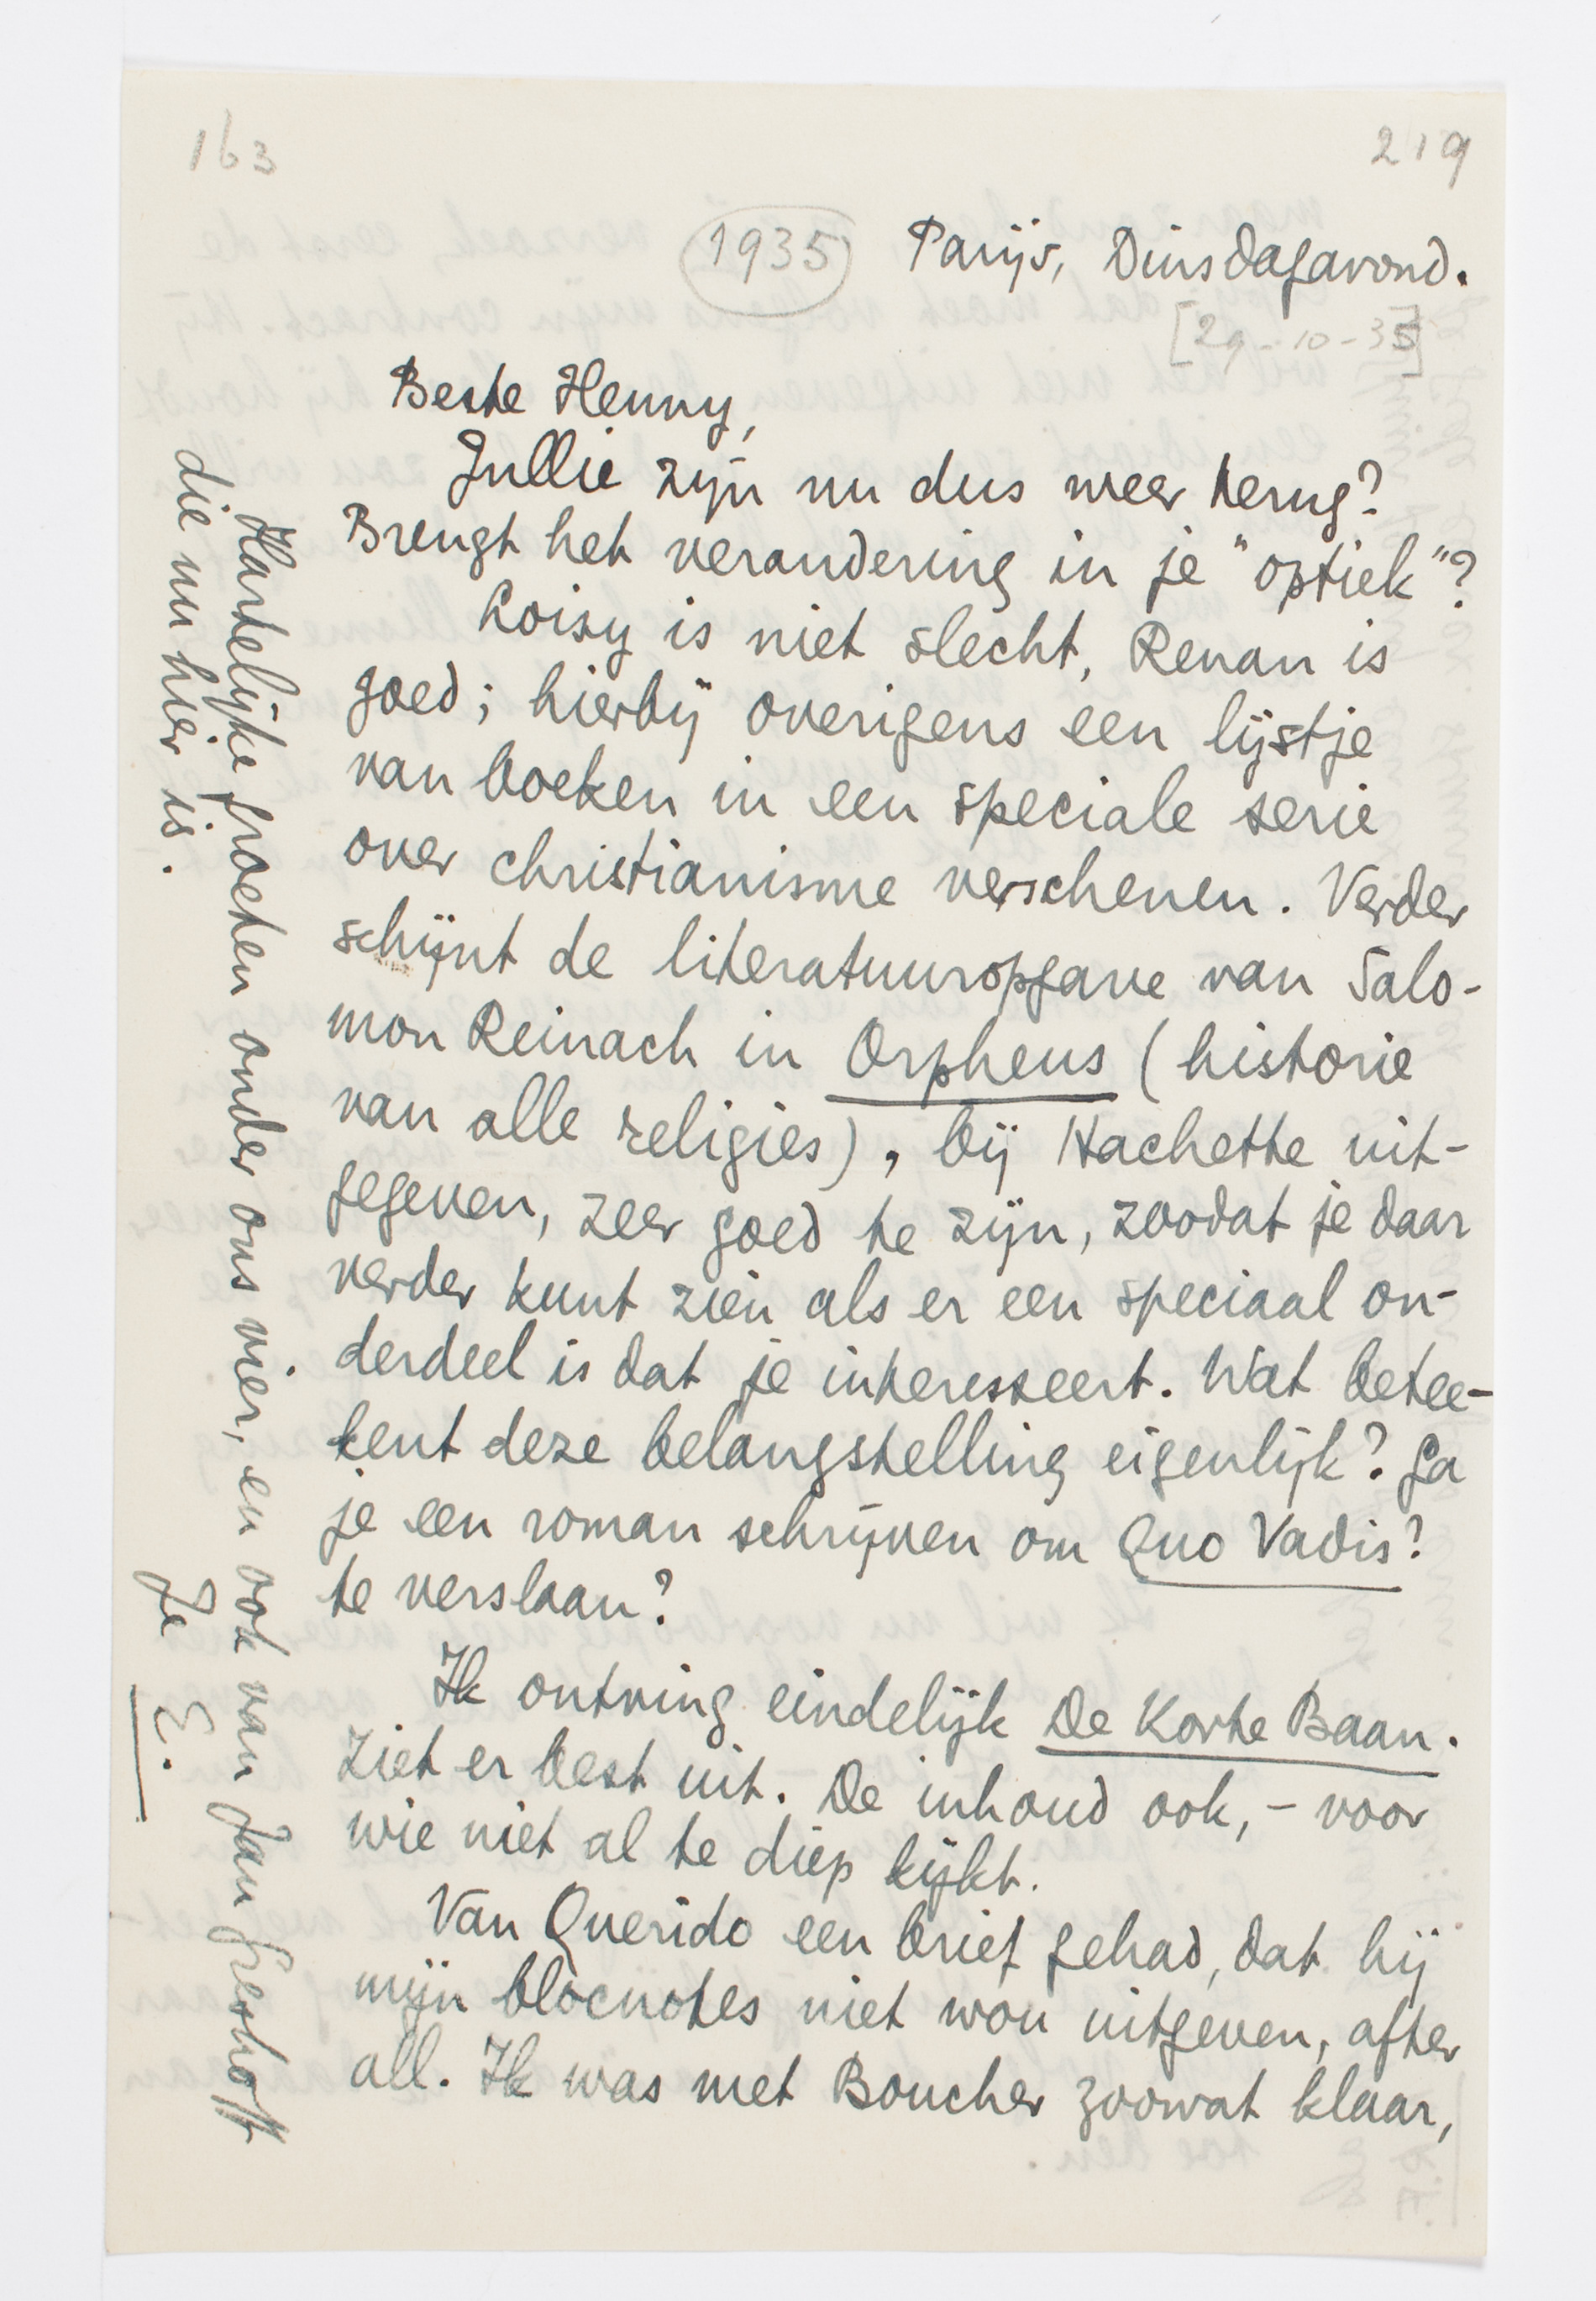 163
219
1935
Parijs, Dinsdagavond.
[29-10-35]
Beste Henny,
Jullie zijn nu dus weer terug?
Brengt het verandering in je "optiek"?
Loisy is niet slecht, Renan is
goed; hierbij overigens een lijstje
van boeken in een speciale serie
over christianisme verschenen. Verder
schijnt de literatuuropgave van Salo-
mon Reinach in Orpheus (historie
van alle religies), bij Hachette uit-
gegeven, zeer goed te zijn, zoodat je daar
verder kunt zien als er een speciaal on-
derdeel is dat je interesseert. Wat betee-
kent deze belangstelling eigenlijk? Ga
je een roman schrijven om Quo Vadis?
te verslaan?
Ik ontving eindelijk De Korte Baan.
Ziet er best uit. De inhoud ook, - voor
wie niet al te diep kijkt.
Van Querido een brief gehad, dat hij
mijn blocnotes niet wou uitgeven, after
all. Ik was met Boucher zoowat klaar,
Hartelijke groeten onder ons vier, en ook van Jan Greshoff
die nu hier is.
Je E.